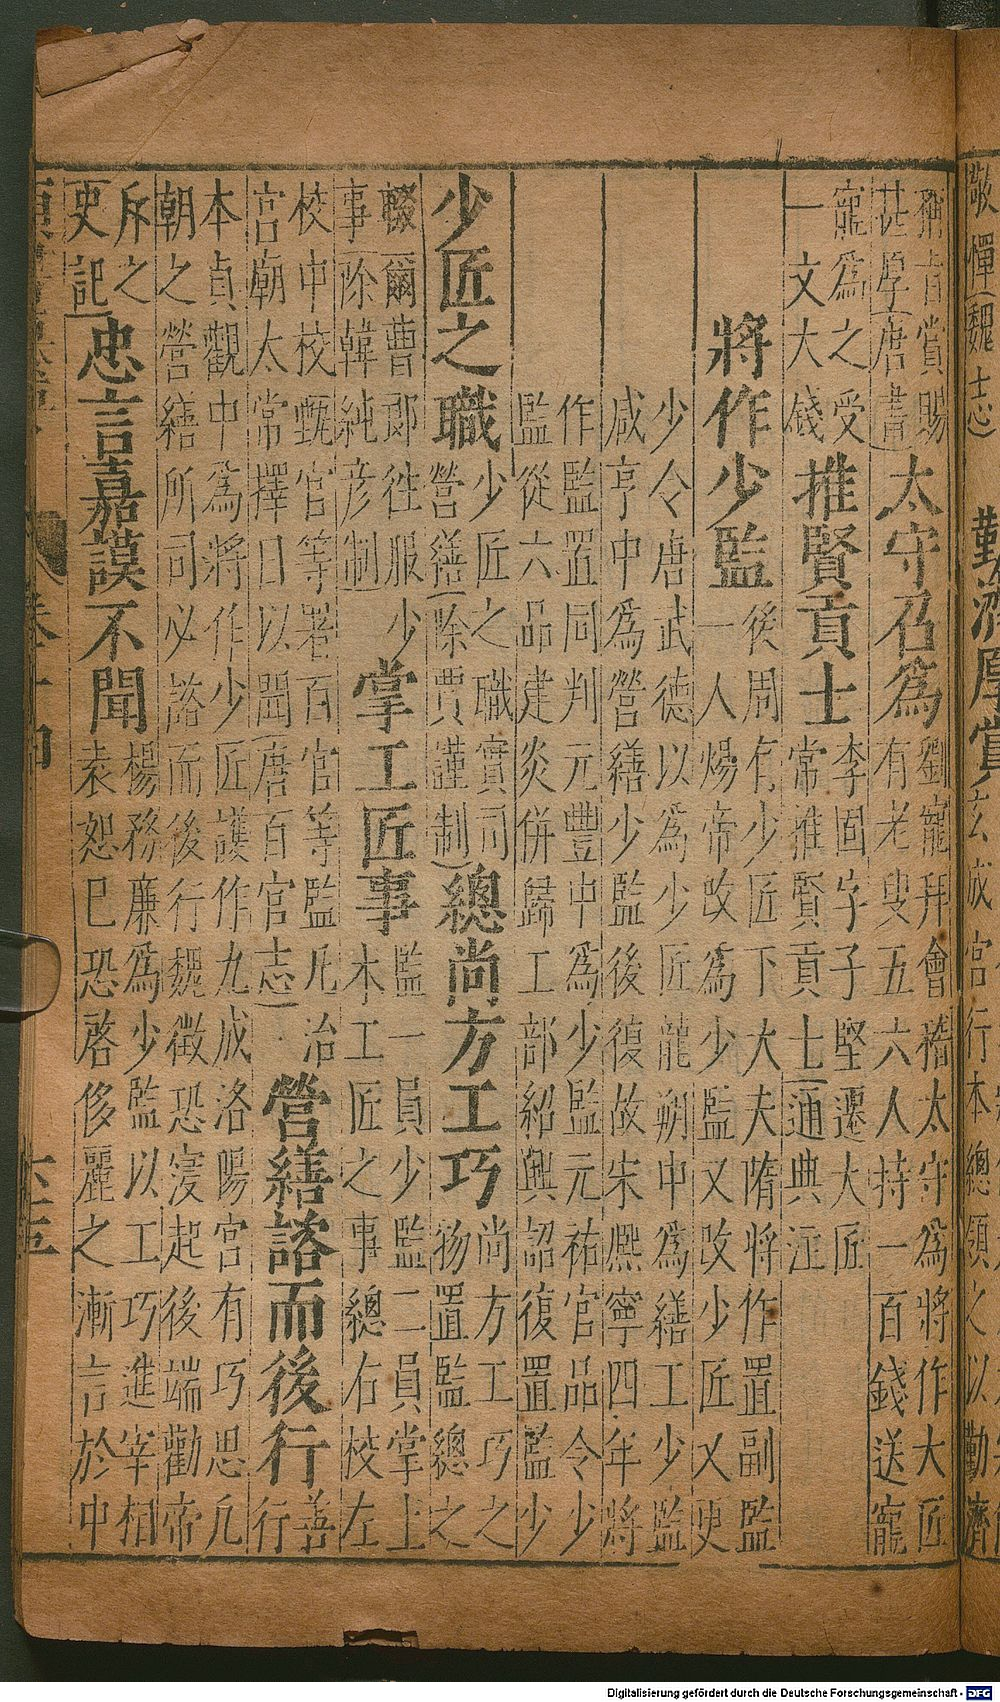 敬憚(魏志)
勤濟厚賞
玄成官行本總領之以勤濟
稱首賞賜
甚厚(唐書)
太守召爲
劉寵拜會稽太守爲將作大匠
有老叟五六人持一百錢送寵
寵爲之受
一文大錢
推賢貢士
李固字子堅遷大匠
常推賢貢士(通典注
將作少監
後周有少匠下大夫隋將作置副監
一人煬帝改爲少監又改少匠又更
少令唐武德以爲少匠龍朔中爲繕工少監
咸亨中爲營繕少監後復故宋熙寧四年將
作監置同判元豐中爲少監元祐官品令少
監從六品建炎併歸工部紹興詔復置監少
少匠之職
少匠之職實司
營繕(除賈謹制)
總尚方工巧
尚方工巧之
物置監總之
輟爾曹郎往服少
事(除韓純彥制)
掌工匠事
監一員少監二員掌土
木工匠之事總右校左
校中校甄官等署百官等監凡治
宮廟太常擇日以聞(唐百官志)
營繕諮而後行
善
行
本貞觀中爲將作少匠護作九成洛陽宮有巧思凡
朝之營繕所司必諮而後行魏徵恐寖起後端勸帝
斥之
史記)
忠言嘉謨不聞
楊務廉爲少監以工巧進宰相
袁恕巳恐啓侈麗之漸言於中
卷十四
六五
Digitalisierung gefördert durch die Deutsche Forschungsgemeinschaft - DFG